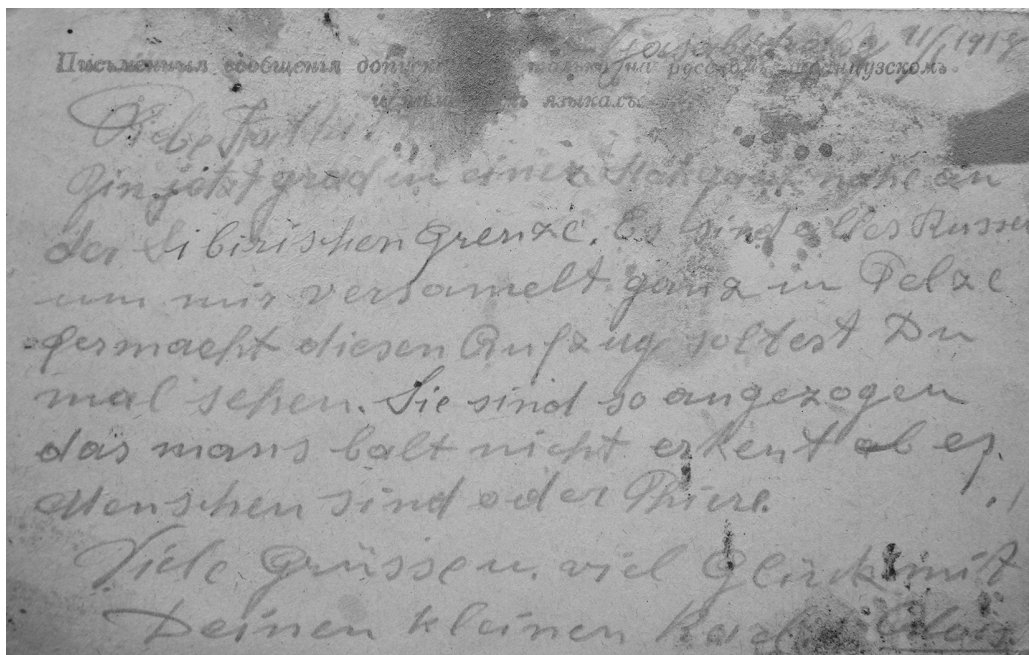 11/I 1918
Письменныя сообщенія допуск только на русскомъ, французскомъ
и языкахъ.
Liebe
Bin jetzt grad in einer nahe an
der Sibirischen Grenze. Es sind alles Russen
um mir versamelt ganz in Pelze
fermacht diesen Aufzug soltest Du
mal sehen. Sie sind so angezogen
das mans balt nicht erkent ob es
Menschen sind oder Thiere.
Viele Grüssen, viel Glück mit
Deinen kleinen